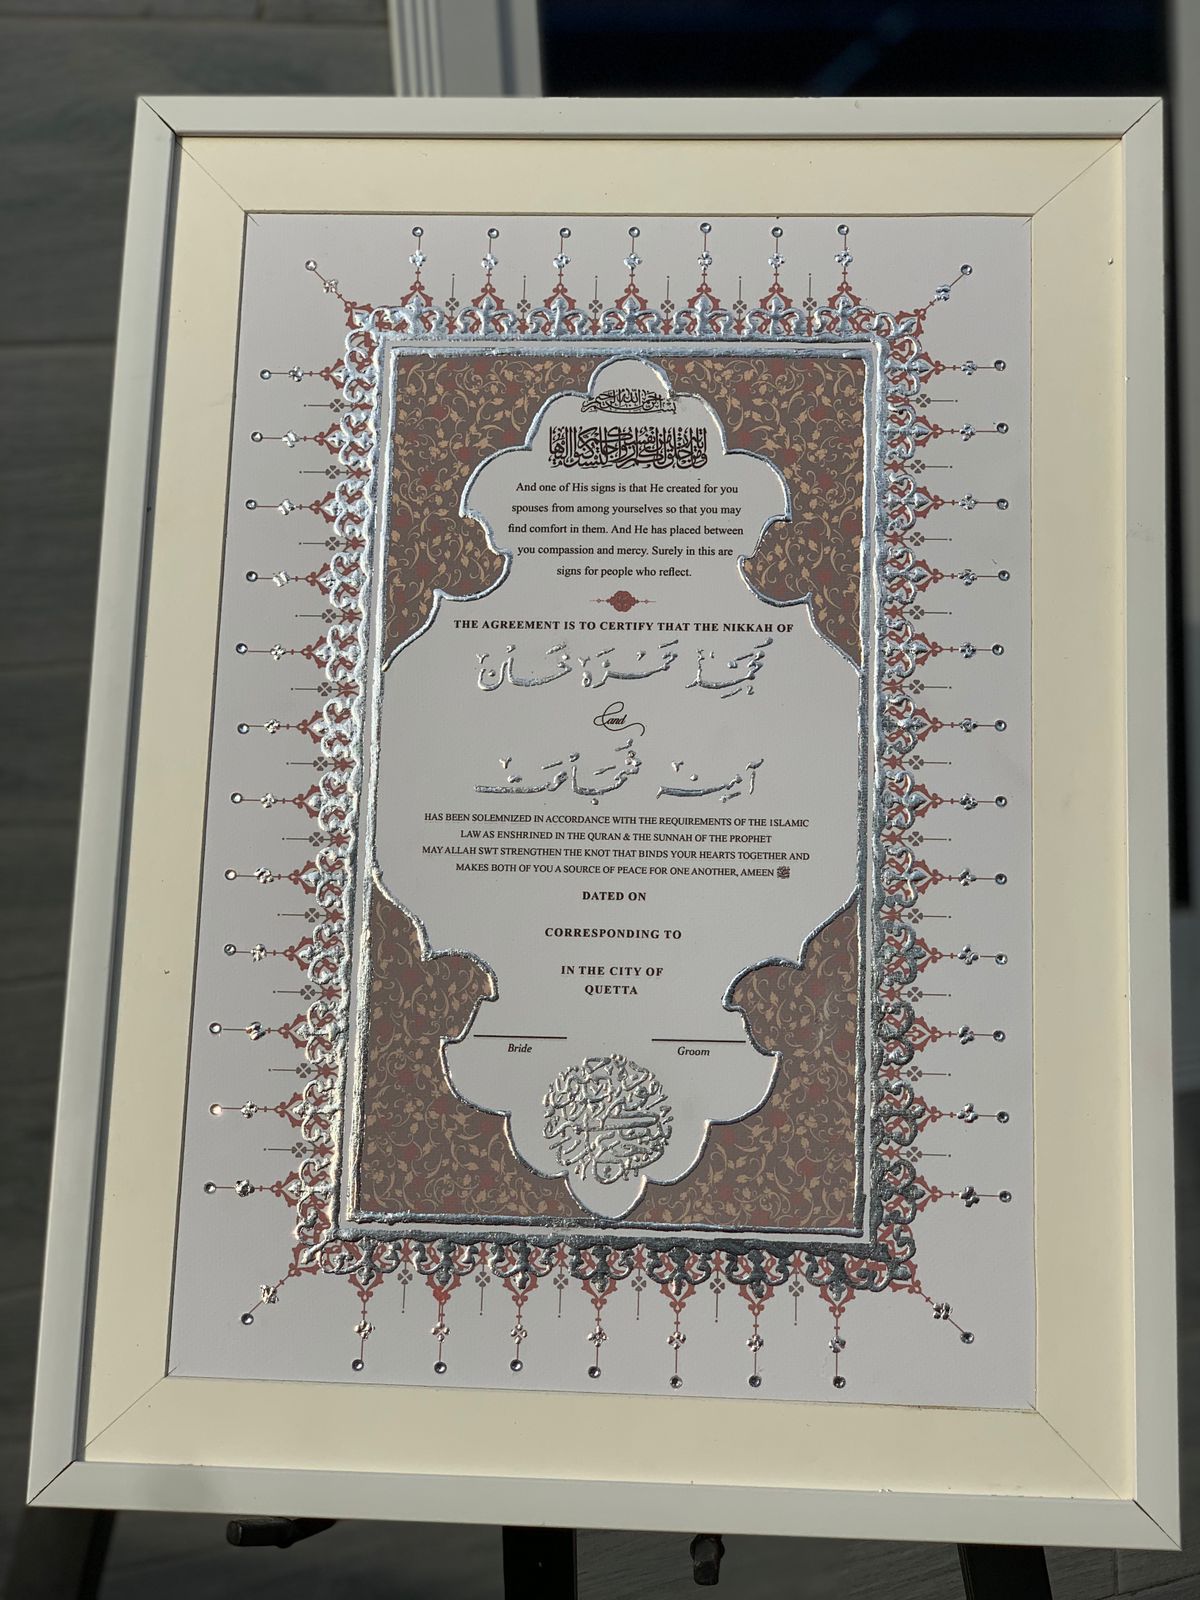 بسم الله الرحمن الرحيم
And one of His signs is that He created for you
spouses from among yourselves so that you may
find comfort in them. And He has placed between
you compassion and mercy. Surely in this are
signs for people who reflect.
THE AGREEMENT IS TO CERTIFY THAT THE NIKKAH OF
محمد حمزہ خان
and
آمنہ شجاعت
HAS BEEN SOLEMNIZED IN ACCORDANCE WITH THE REQUIREMENTS OF THE ISLAMIC
LAW AS ENSHRINED IN THE QURAN & THE SUNNAH OF THE PROPHET
MAY ALLAH SWT STRENGTHEN THE KNOT THAT BINDS YOUR HEARTS TOGETHER AND
MAKES BOTH OF YOU A SOURCE OF PEACE FOR ONE ANOTHER, AMEEN ﷺ
DATED ON
CORRESPONDING TO
IN THE CITY OF
QUETTA
Bride Groom